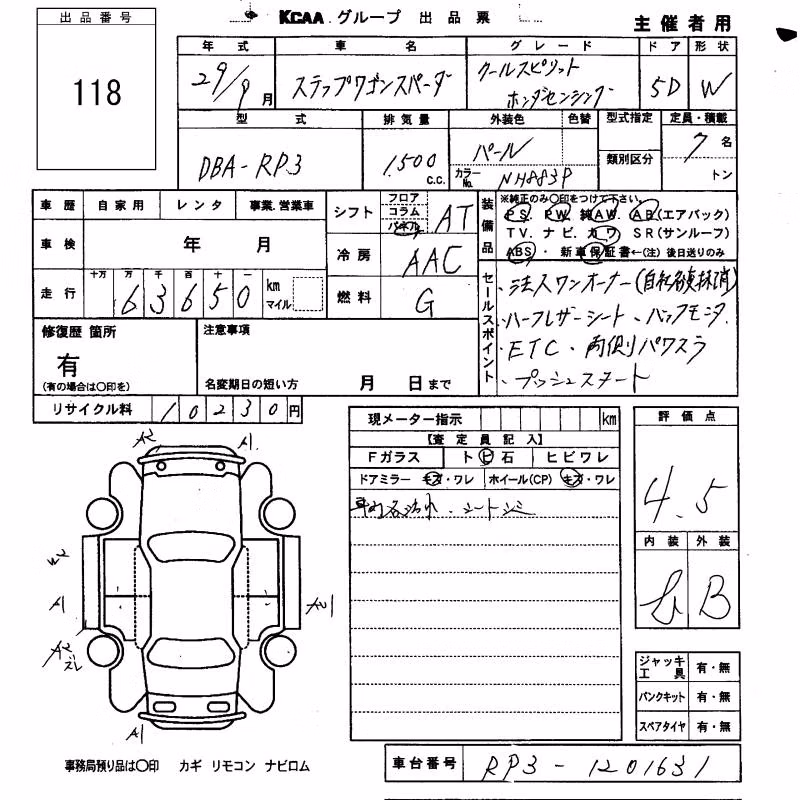 出品番号
118
KCAA グループ 出品票
主催者用
年式 車名 グレード ドア 形状
29/9月 ステップワゴンスパーダ クールスピリット ホンダセンシング 5D W
型式 排気量 外装色 色替 型式指定 定員・積載
DBA-RP3 1500 c.c. パール カラーNo. NH883P 類別区分 7名 トン
車歴 自家用 レンタ 事業.営業車
車検 年 月
走行 十万 万 千 百 十 一 km マイル
63650
シフト フロア コラム パネル AT
冷房 AAC
燃料 G
装備品 ※純正のみ〇印をつけて下さい。
PS. PW. 純AW. AB(エアバック)
TV. ナビ. カワ SR(サンルーフ)
ABS・新車保証書←(注)後日送りのみ
セールスポイント
・法人ワンオーナー(自社名義抹消)
・ハーフレザーシート、バックモニタ
・ETC、両側パワスラ
・プッシュスタート
修復歴 箇所
有
(有の場合は〇印を)
注意事項
名変期日の短い方 月 日まで
リサイクル料 10230円
現メーター指示 km
【査定員記入】
Fガラス トビ石 ヒビワレ
ドアミラー キズ・ワレ ホイール(CP) キズ・ワレ
シートシミ
評価点
4.5
内装 外装
B
A2 A1
A1
A2
A1
ジャッキ工具 有・無
パンクキット 有・無
スペアタイヤ 有・無
事務局預り品は〇印 カギ リモコン ナビロム
車台番号 RP3-1201631